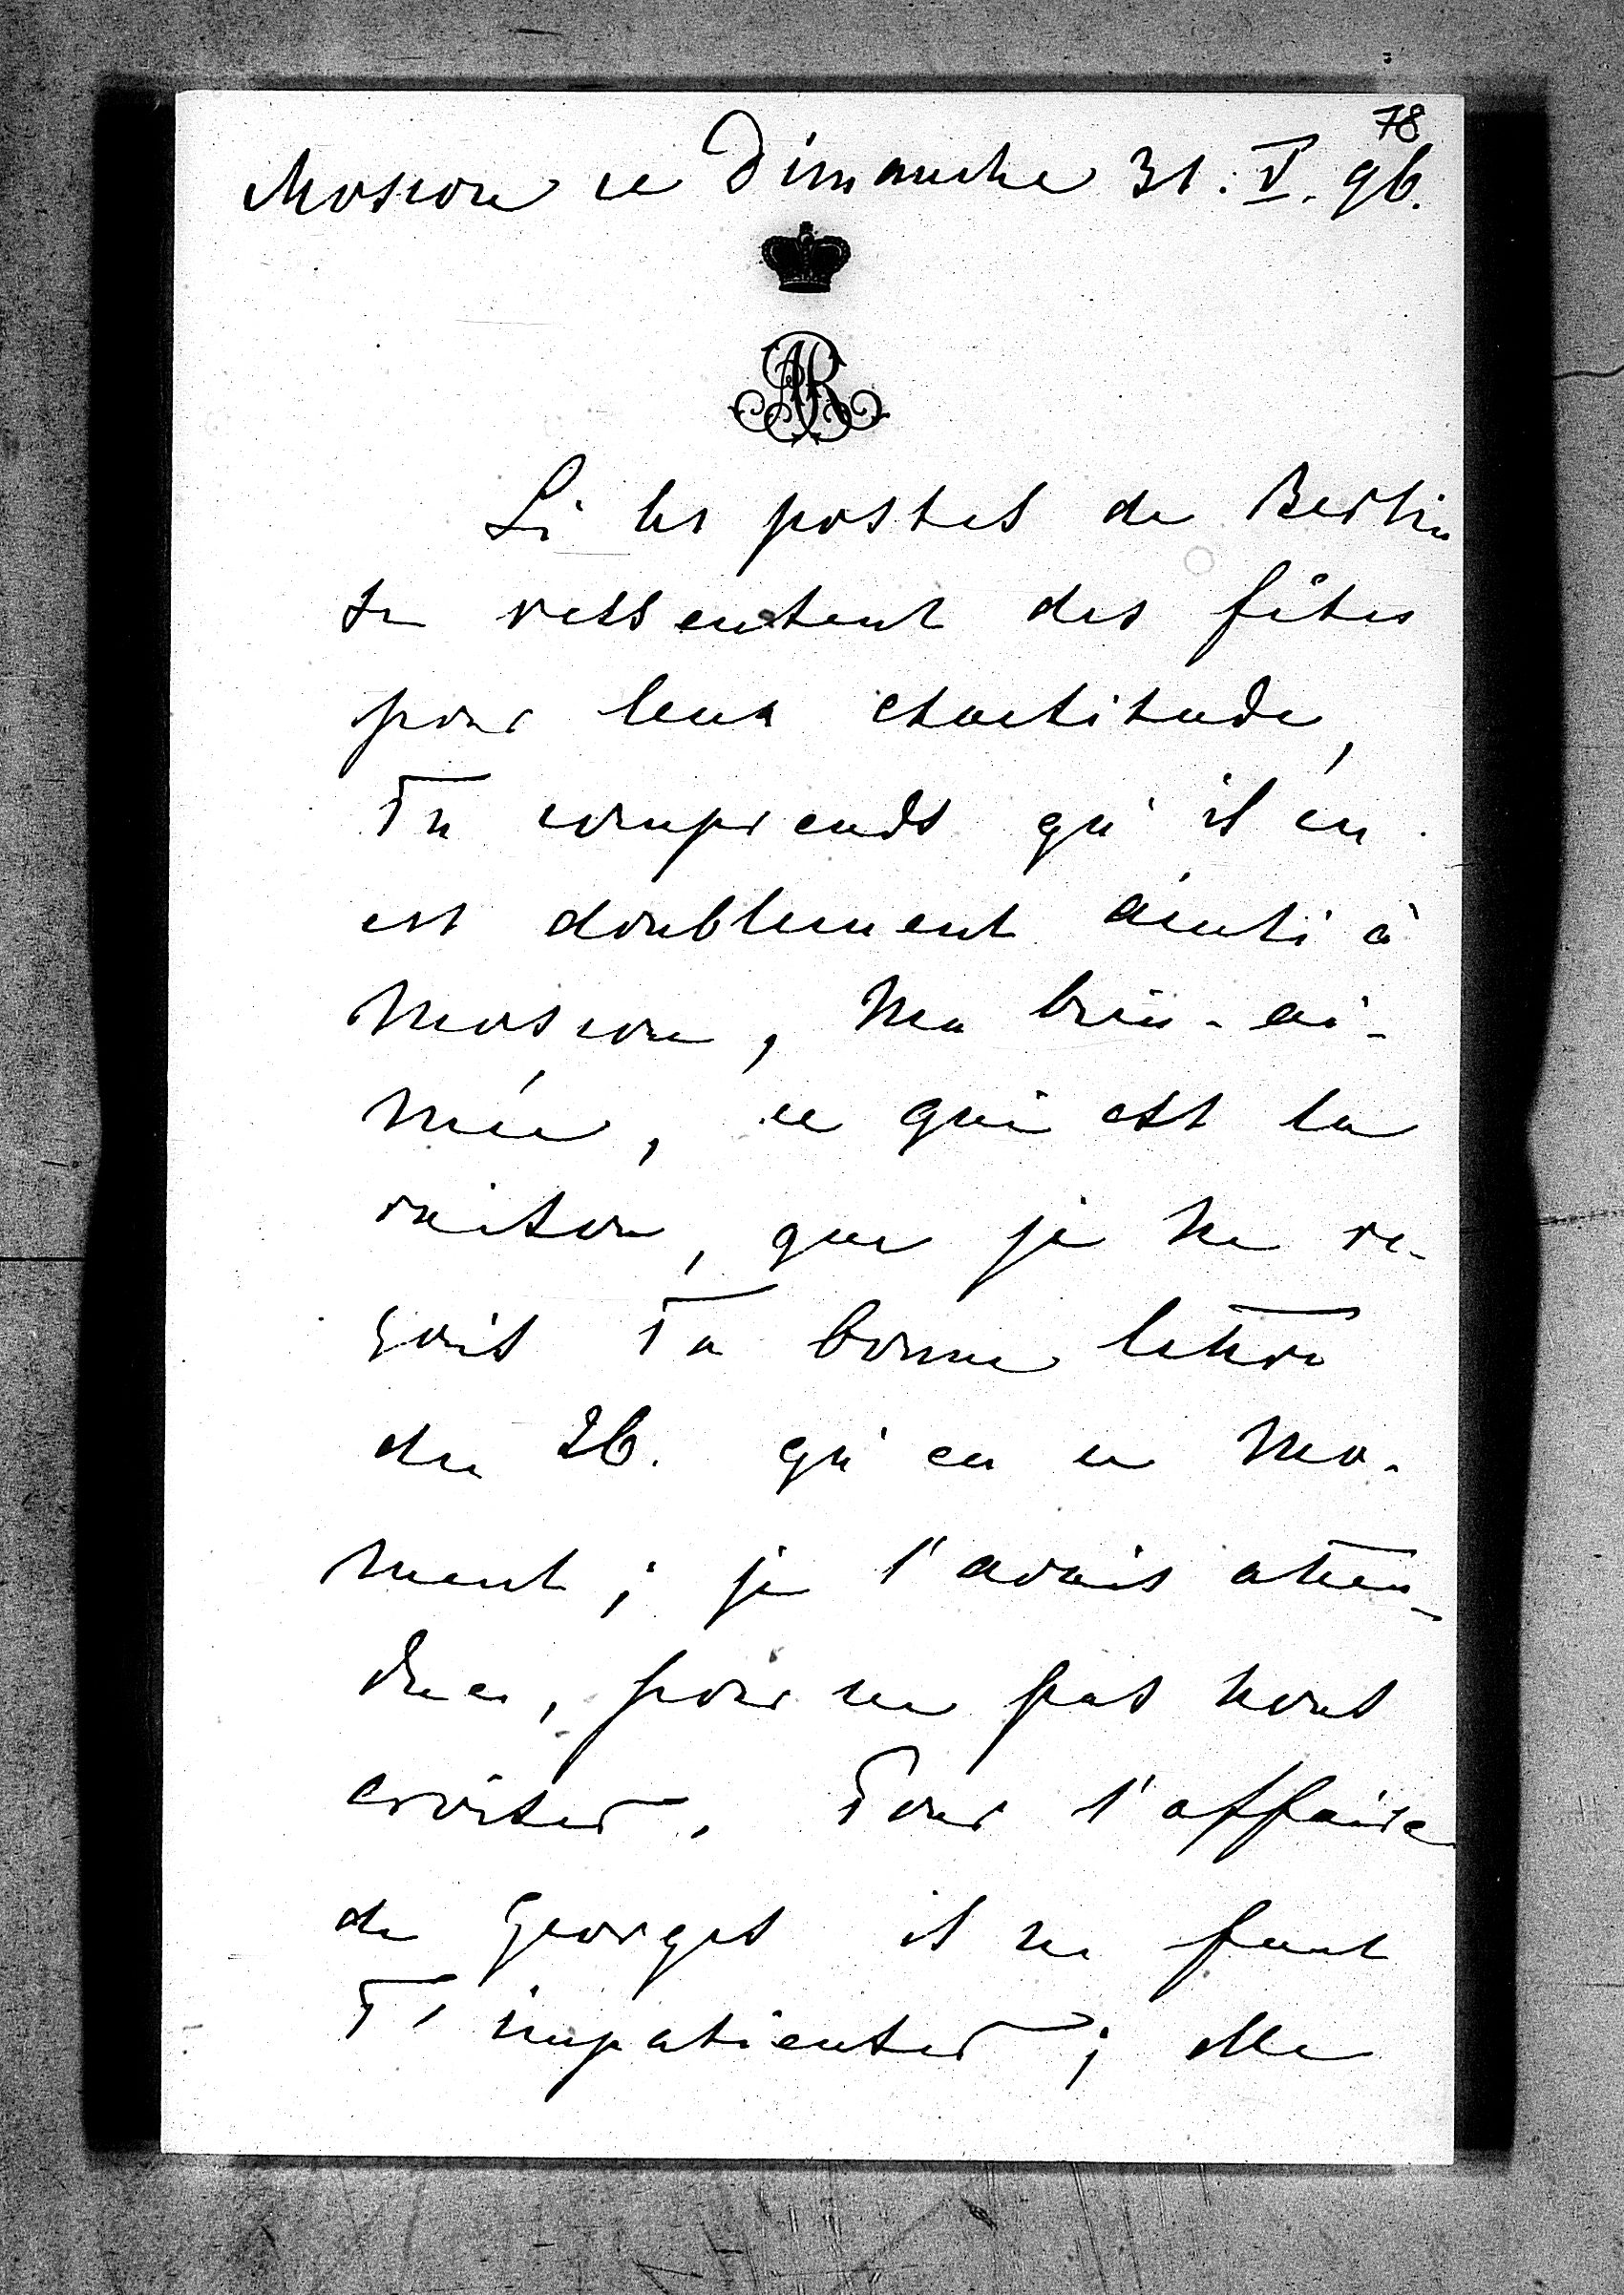 78
Moscou ce Dimanche 31. V. 96.
AR
Si les postes de Berlin
se ressentent des fêtes
pour leur exactitude,
Tu comprends qu'il en
est doublement ainsi à
Moscou, Ma bien-ai-
mée, ce qui est la
raison, que je ne re-
çois Ta bonne lettre
du 26. qu'en ce mo-
ment; je l'avais atten-
due, pour ne pas nous
croiser. Pour l'affaire
de Georges il ne faut
T'impatienter; elle